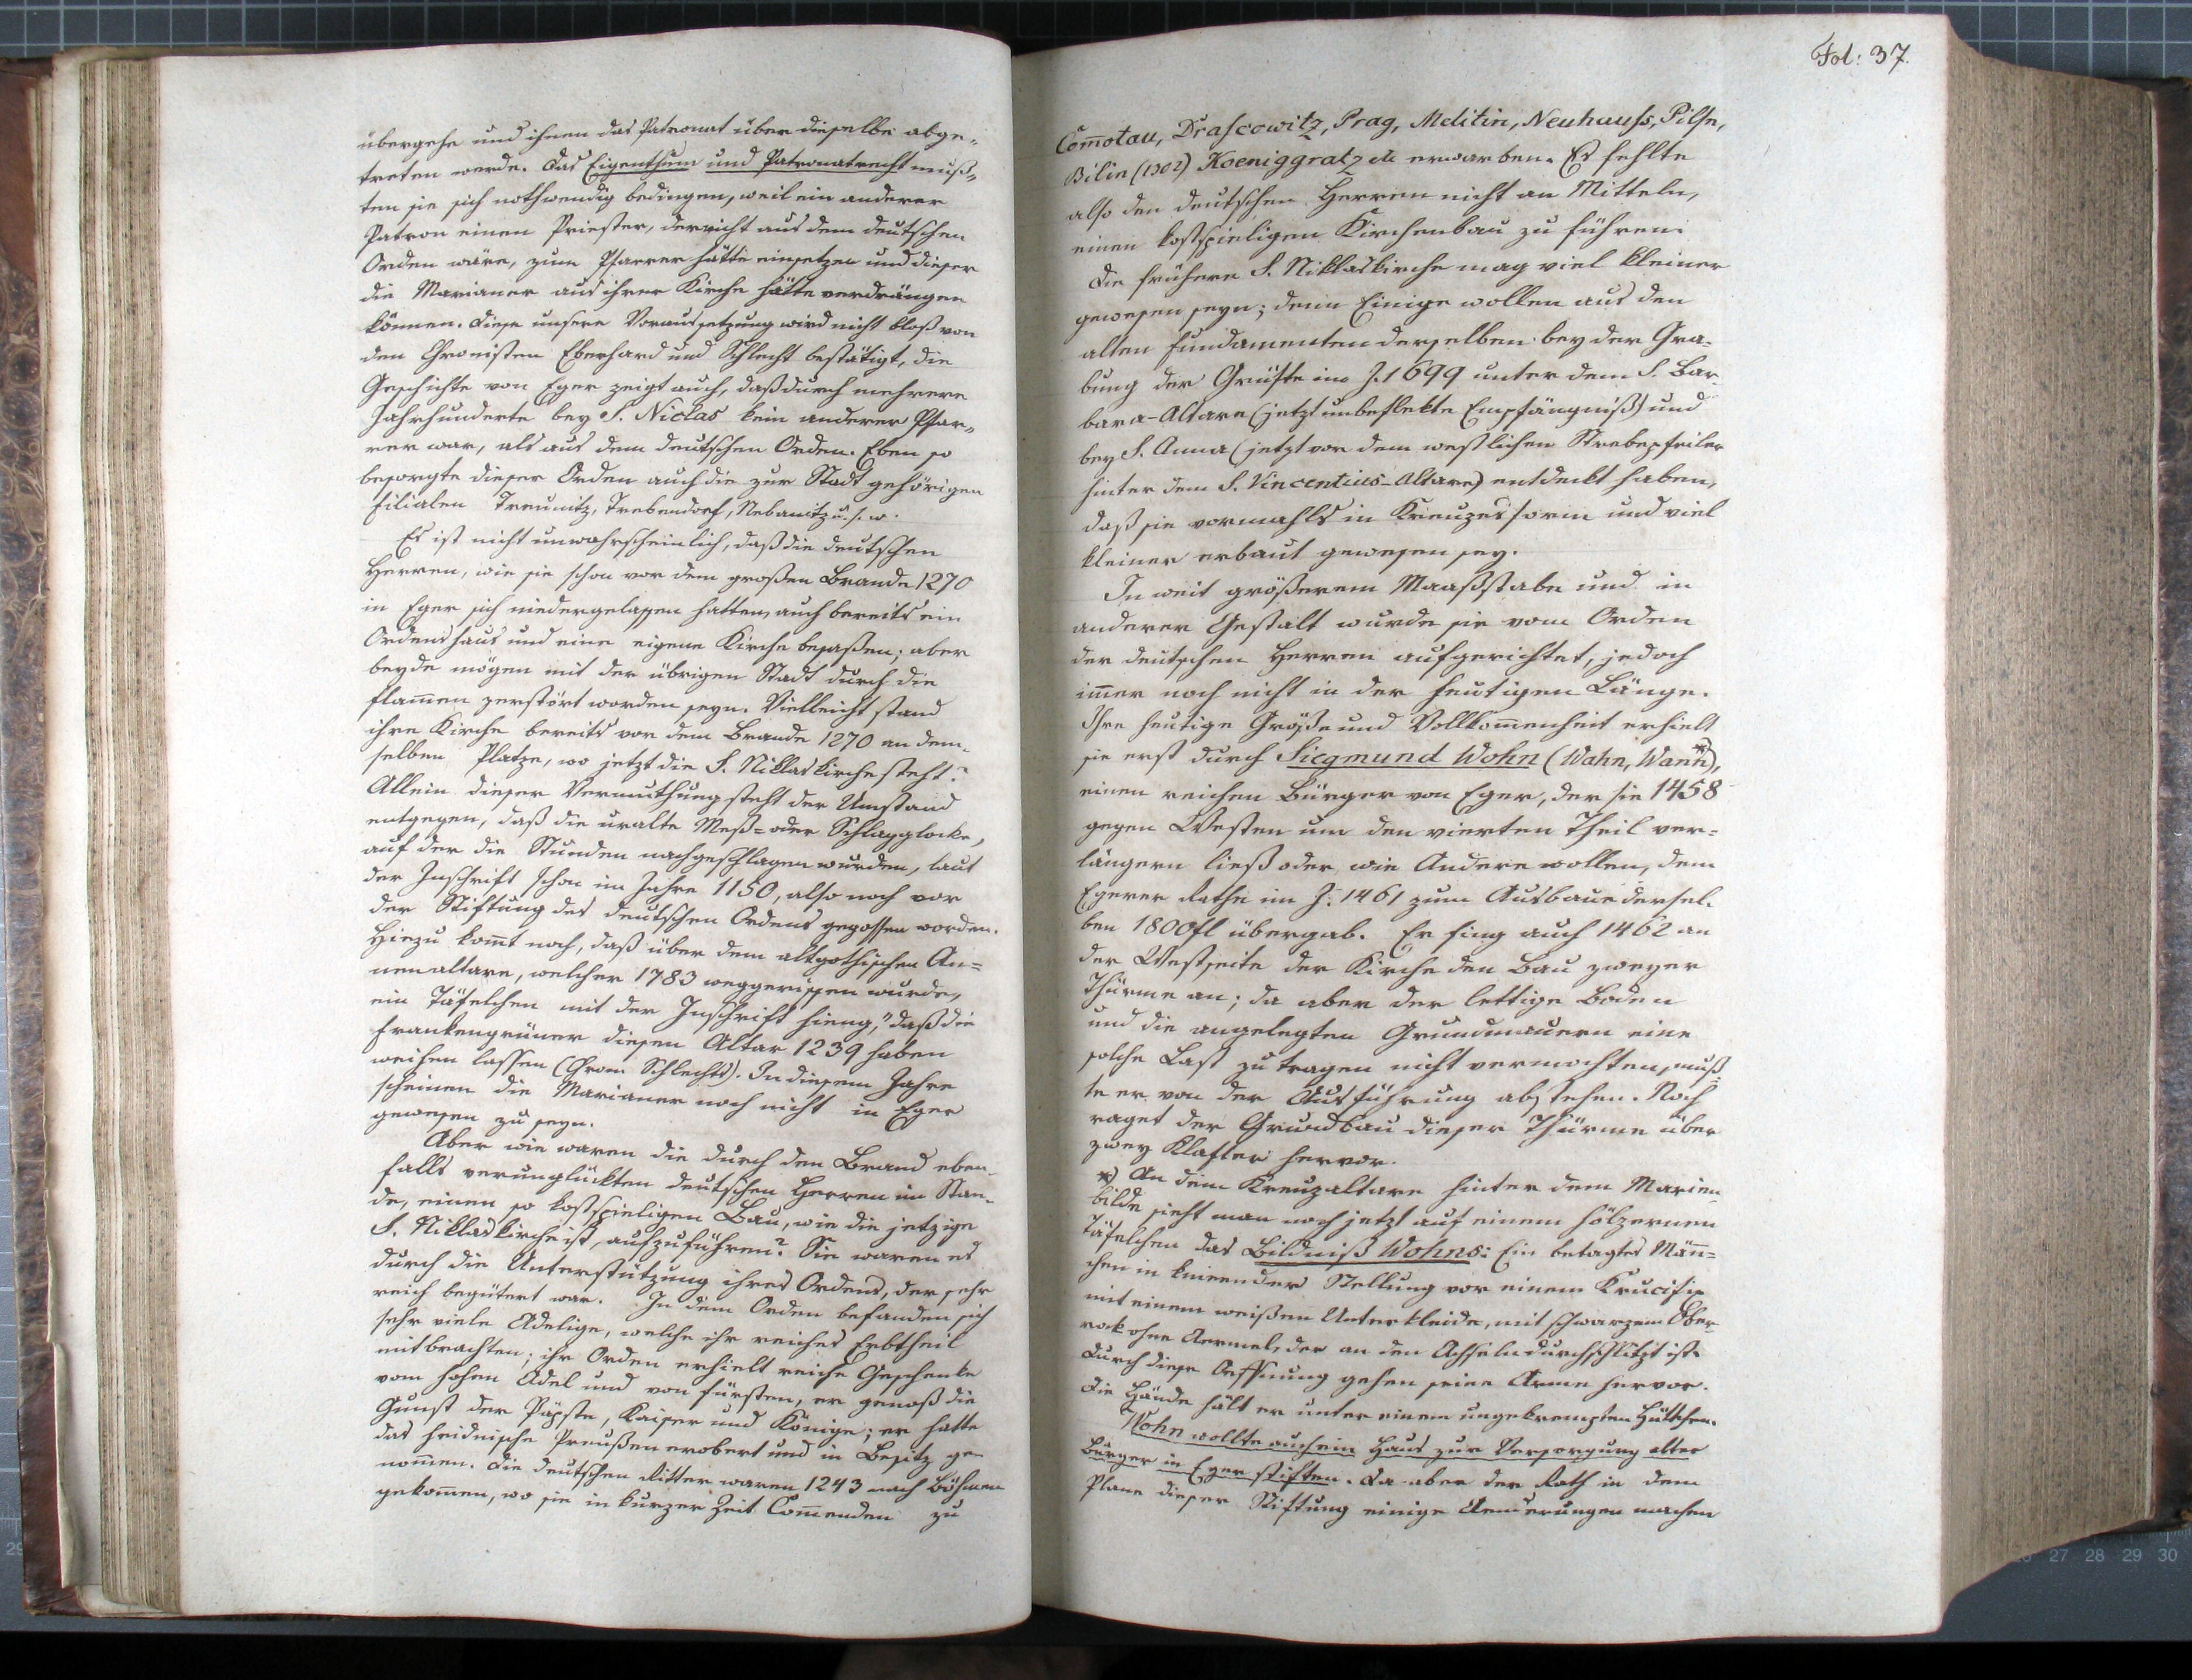 übergehe und ihnen das Patronat über dieselbe abge-
treten werde. Das Eigenthum und Patronatrecht muß-
ten sie sich nothwendig bedingen, weil ein anderer
Patron einen Priester, der nicht aus dem deutschen
Orden wäre, zum Pfarrer hätte einsetzen und dieser
die Marianer aus ihrer Kirche hätte verdrängen
können. Diese unsere Voraussetzung wird nicht bloß von
den Chronisten Eberhard und Schlecht bestätigt, die
Geschichte von Eger zeigt auch, daß durch mehrere
Jahrhunderte bey S. Niclas kein anderer Pfar-
rer war, als aus dem deutschen Orden. Eben so
besorgte dieser Orden auch die zur Stadt gehörigen
Filialen Treunitz, Trebendorf, Nebanitz u. s. w.
Es ist nicht unwahrscheinlich, daß die deutschen
Herren, wie sie schon vor dem großen Brande 1270
in Eger sich niedergelassen hatten, auch bereits ein
Ordenshaus und eine eigene Kirche besaßen; aber
beyde mögen mit der übrigen Stadt durch die
Flam̅en zerstört worden seyn. Vielleicht stand
ihre Kirche bereits vor dem Brande 1270 an dem-
selben Platze, wo jetzt die S. Niklaskirche steht?
Allein dieser Vermuthung steht der Umstand
entgegen, daß die uralte Meß- oder Schlagglocke,
auf der die Stunden nachgeschlagen wurden, laut
der Inschrift schon im Jahre 1150, also noch vor
der Stiftung des deutschen Ordens gegossen worden.
Hiezu kom̅t noch, daß über dem altgothischen An-
nenaltare, welcher 1783 weggerissen wurde,
ein Täfelchen mit der Inschrift hieng, "daß die
Frankengrüner diesen Altar 1239 haben
weihen lassen (Chron. Schlechts). In diesem Jahre
scheinen die Marianer noch nicht in Eger
gewesen zu seyn.
Aber wie waren die durch den Brand eben-
falls verunglückten deutschen Herren im Stan-
de, einen so kostspieligen Bau, wie die jetzige
S. Niklaskirche ist, aufzuführen? Sie waren es
durch die Unterstützung ihres Ordens, der sehr
reich begütert war. In dem Orden befanden sich
sehr viele Adelige, welche ihr reiches Erbtheil
mitbrachten; ihr Orden erhielt reiche Geschenke
vom hohen Adel und von Fürsten, er genoß die
Gunst der Päpste, Kaiser und Könige; er hatte
das heidnische Preußen erobert und in Besitz ge-
nom̅en. Die deutschen Ritter waren 1243 nach Böhmen
gekom̅en, wo sie in kurzer Zeit Com̅enden zu
Fol: 37.
Com̅otau, Drascowitz, Prag, Melitin, Neuhauss, Pilsn,
Bilin (1302) Koeniggratz etc erwarben. Es fehlte
also den deutschen Herren nicht an Mitteln,
einen kostspieligen Kirchenbau zu führen.
Die frühere S. Niklaskirche mag viel kleiner
gewesen seyn; denn Einige wollen aus den
alten Fundamenten derselben bey der Gra-
bung der Grüfte im J. 1699 unter dem S. Bar-
bara-Altare (jetzt unbeflekte Empfängniß) und
bey S. Anna (jetzt vor dem westlichen Strebepfeiler
hinter dem S. Vincentius-Altare) entdeckt haben,
daß sie vormahls in Kreuzesform und viel
kleiner erbaut gewesen sey.
In weit größerem Maaßstabe und in
anderer Gestalt wurde sie vom Orden
der deutschen Herren aufgerichtet, jedoch
im̅er noch nicht in der heutigen Länge.
Ihre heutige Größe und Vollkom̅enheit erhielt
sie erst durch Siegmund Wohn (Wahn, Wann*),
einen reichen Bürger von Eger, der sie 1458
gegen Westen um den vierten Theil ver-
längern ließ oder, wie Andere wollen, dem
Egerer Rathe im J. 1461 zum Ausbaue dersel-
ben 1800 fl übergab. Er fing auch 1462 an
der Westseite der Kirche den Bau zweyer
Thürme an; da aber der lettige Boden
und die angelegten Grundmauern eine
solche Last zu tragen nicht vermochten, muß-
te er von der Ausführung abstehen. Noch
raget der Grundbau dieser Thürme über
zwey Klafter hervor.
*) An dem Kreuzaltare hinter dem Marien-
bilde sieht man noch jetzt auf einem hölzernen
Täfelchen das Bildniß Wohns: Ein betagtes Män̅-
chen in knieender Stellung vor einem Krucifix
mit einem weißen Unterkleide, mit schwarzem Ober-
rock ohne Aermel, der an den Achseln durchschlitzt ist.
Durch diese Oeffnung gehen seine Arme hervor.
Die Hände hält er unter einem ungekrempten Hütchen.
Wohn wollte auch ein Haus zur Versorgung alter
Bürger in Eger stiften. Da aber der Rath in dem
Plane dieser Stiftung einige Aenderungen machen